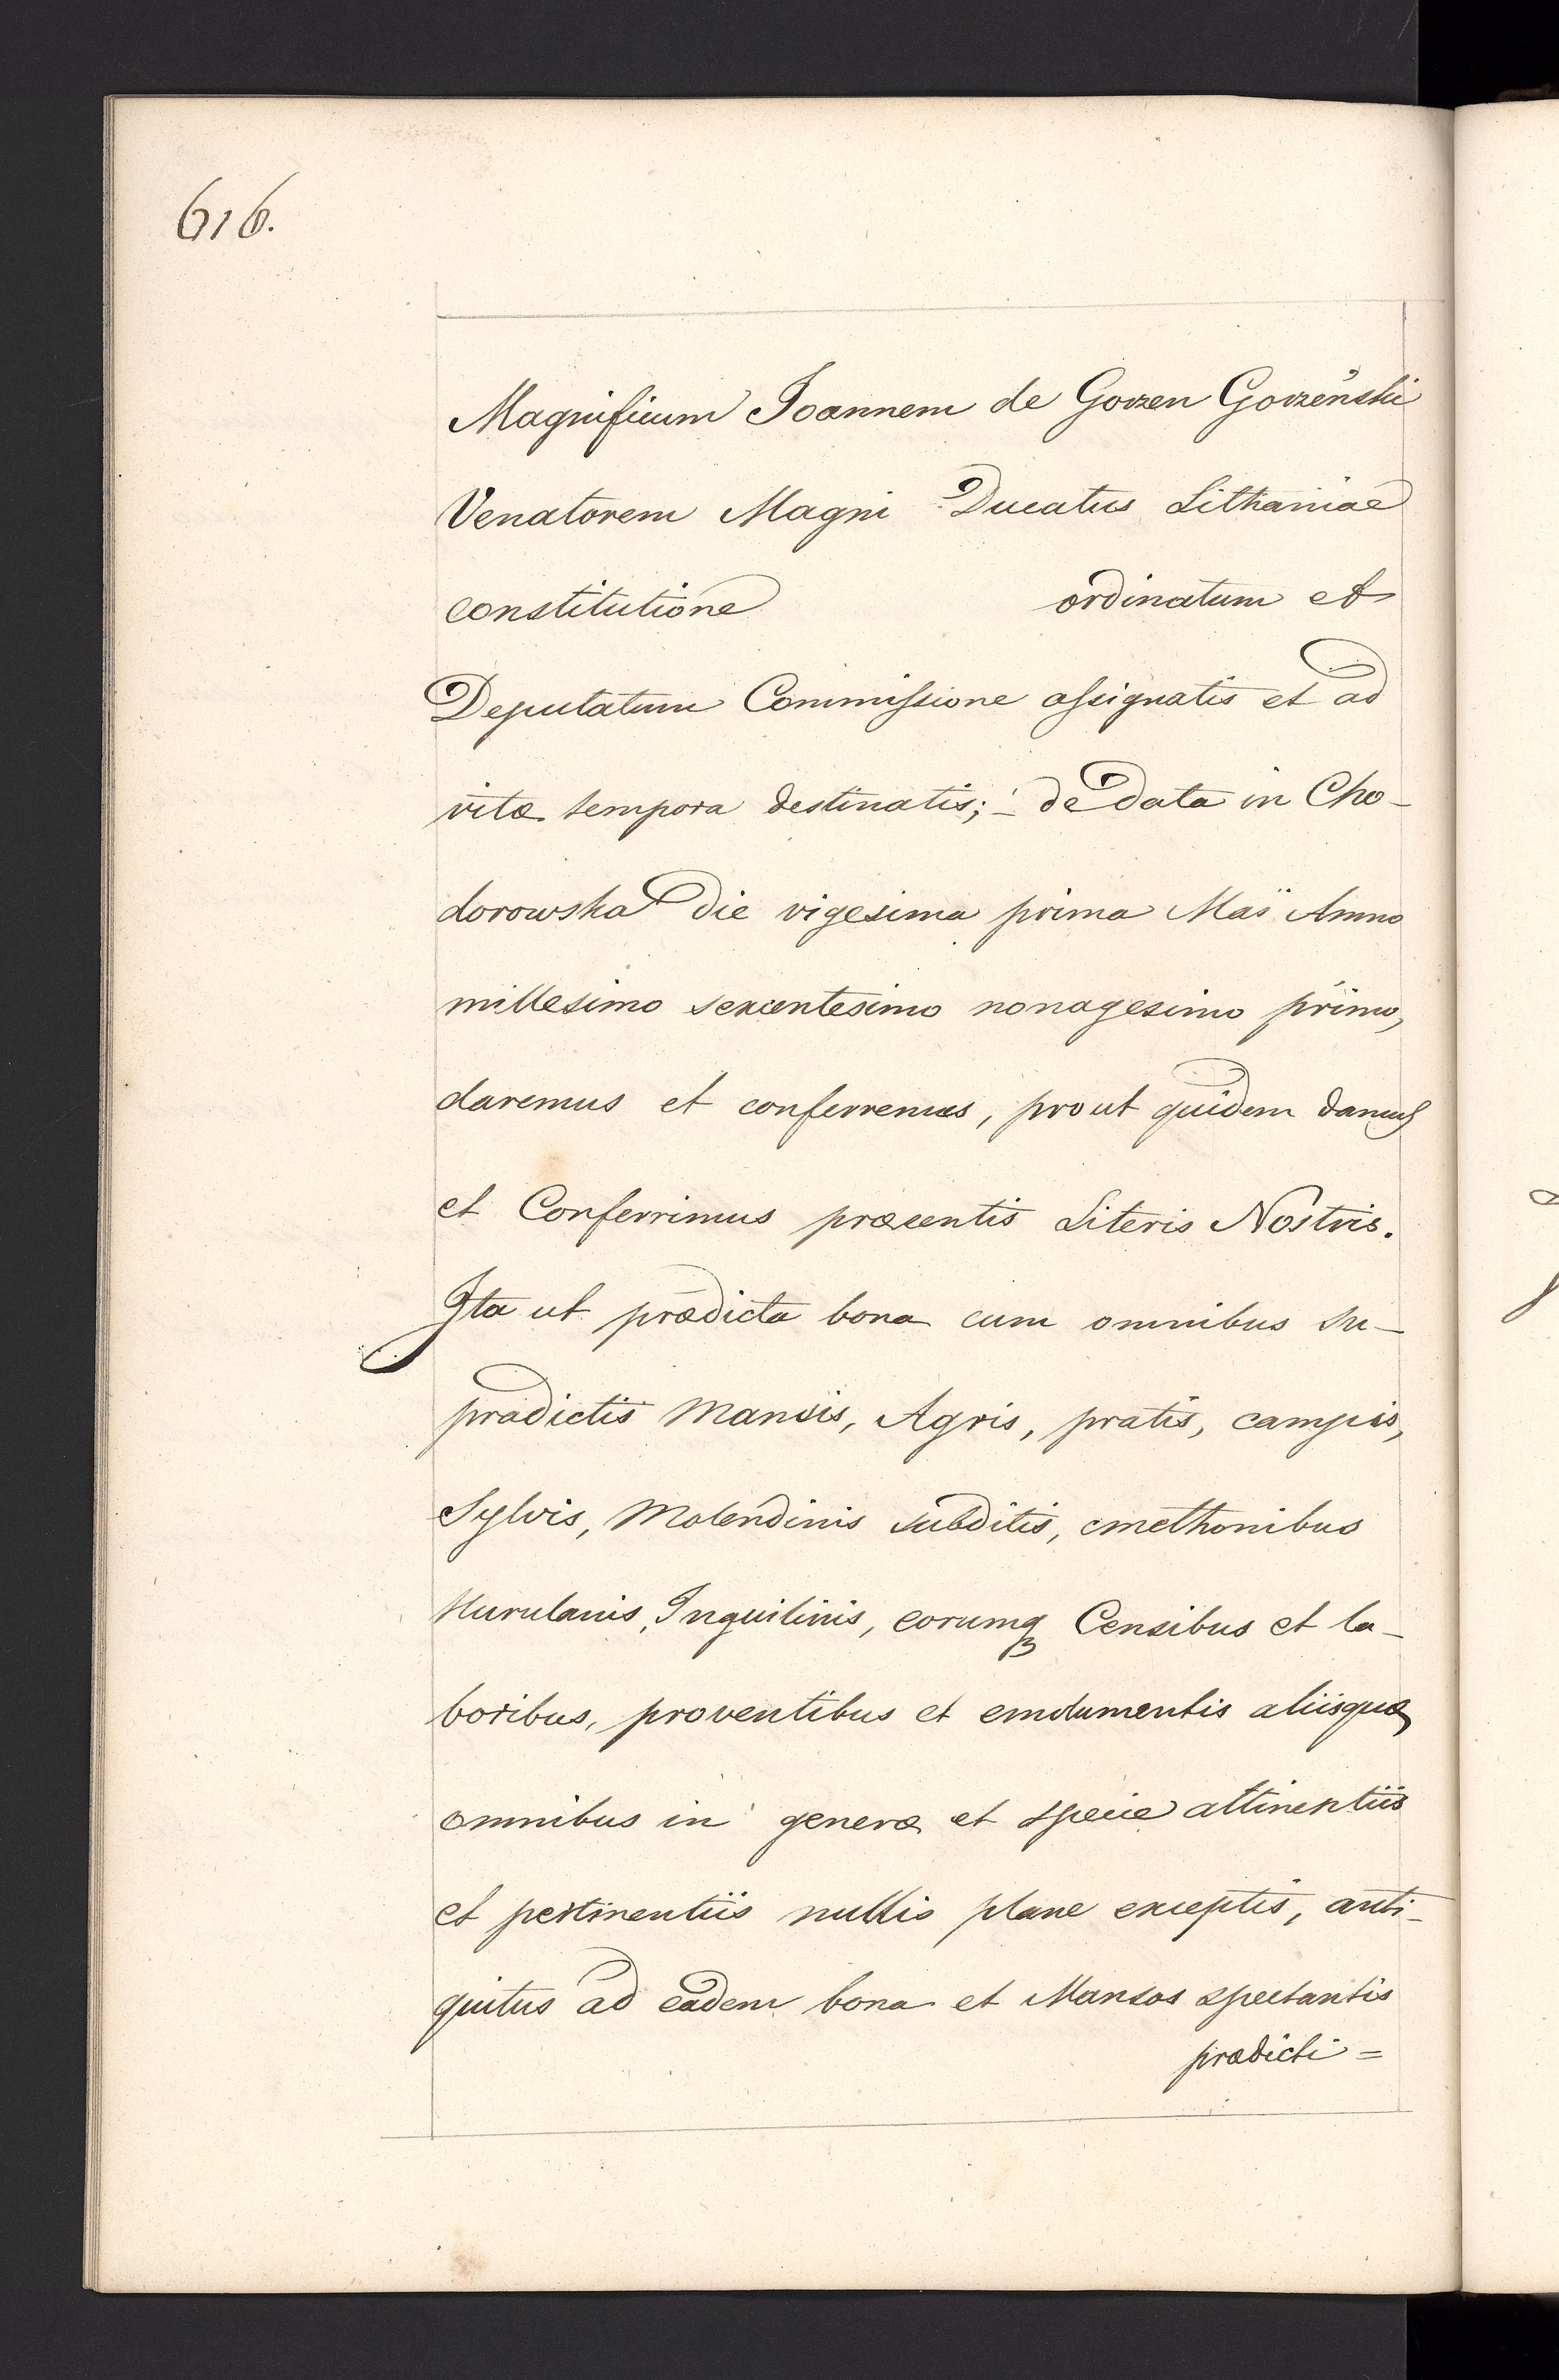 616.
Magnificum Joannem de Gorzen Gorzeński
Venatorem Magni Ducatus Lithaniae
constitutione ordinatum et
Deputatum Commissione assignatis et ad
vitæ tempora destinatis; de data in Cho-
dorowska die vigesima prima Maï Anno
millesimo sexcentesimo nonagesimo primo,
daremus et conferremus, prout quidem damus
et Conferrimus præsentis Literis Nostris.
Ita ut prædicta bona cum omnibus su-
pradictis Mansis, Agris, pratis, campis,
Sylvis, Molendinis subditis, cmethonibus
Hurulanis, Inquilinis, eorumq Censibus et la-
boribus, proventibus et emolumentis aliisque
omnibus in genere et specie attinentiis
et pertinentiis nullis plane exceptis, anti-
quitus ad eadem bona et Mansos spectantis
prædicti=